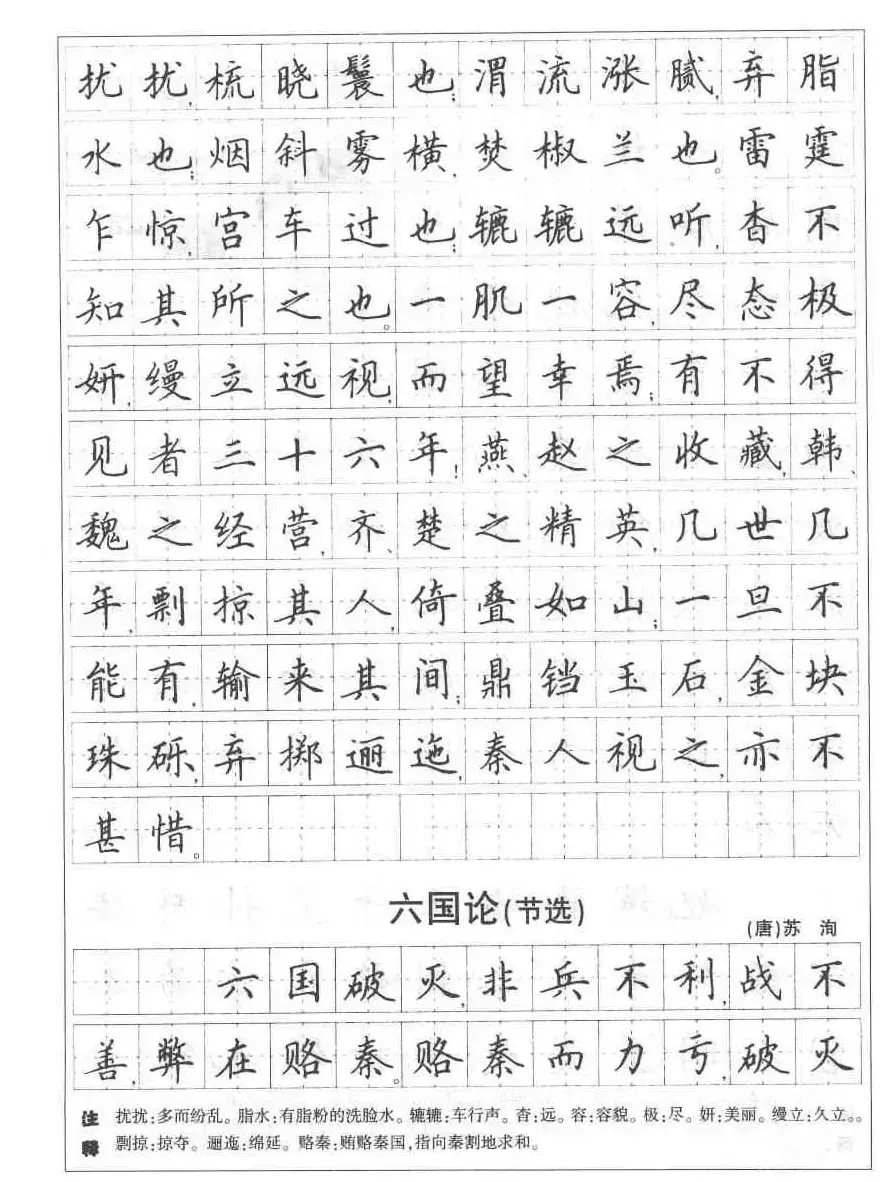 扰扰,梳晓鬟也;渭流涨腻,弃脂
水也;烟斜雾横,焚椒兰也。雷霆
乍惊,宫车过也;辘辘远听,杳不
知其所之也。一肌一容,尽态极
妍,缦立远视,而望幸焉;有不得
见者三十六年!燕、赵之收藏,韩、
魏之经营,齐、楚之精英,几世几
年,剽掠其人,倚叠如山;一旦不
能有,输来其间;鼎铛玉石,金块
珠砾,弃掷逦迤,秦人视之,亦不
甚惜。
六国论(节选)
(唐)苏 洵
六国破灭,非兵不利,战不
善,弊在赂秦。赂秦而力亏,破灭
注释 扰扰:多而纷乱。脂水:有脂粉的洗脸水。辘辘:车行声。杳:远。容:容貌。极:尽。妍:美丽。缦立:久立。。
剽掠:掠夺。逦迤:绵延。赂秦:贿赂秦国,指向秦割地求和。